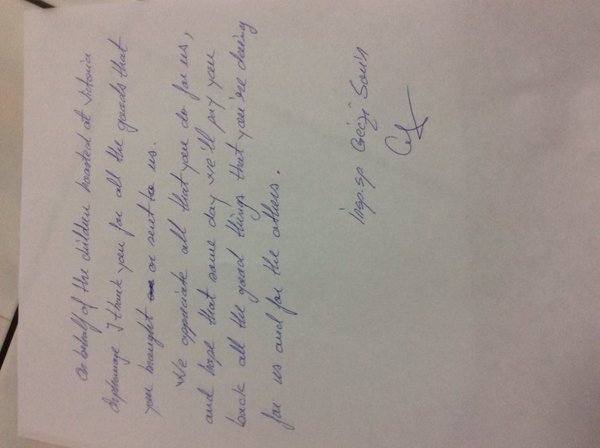 On behalf of the children hoasted at Victoria
Orphanage I thank you for all the goods that
you brought or sent to us.
We appreciate all that you do for us,
and hope that some day we'll pay you
back all the good things that you're doing
for us and for the others.
Insp. sp Geczi Sorin